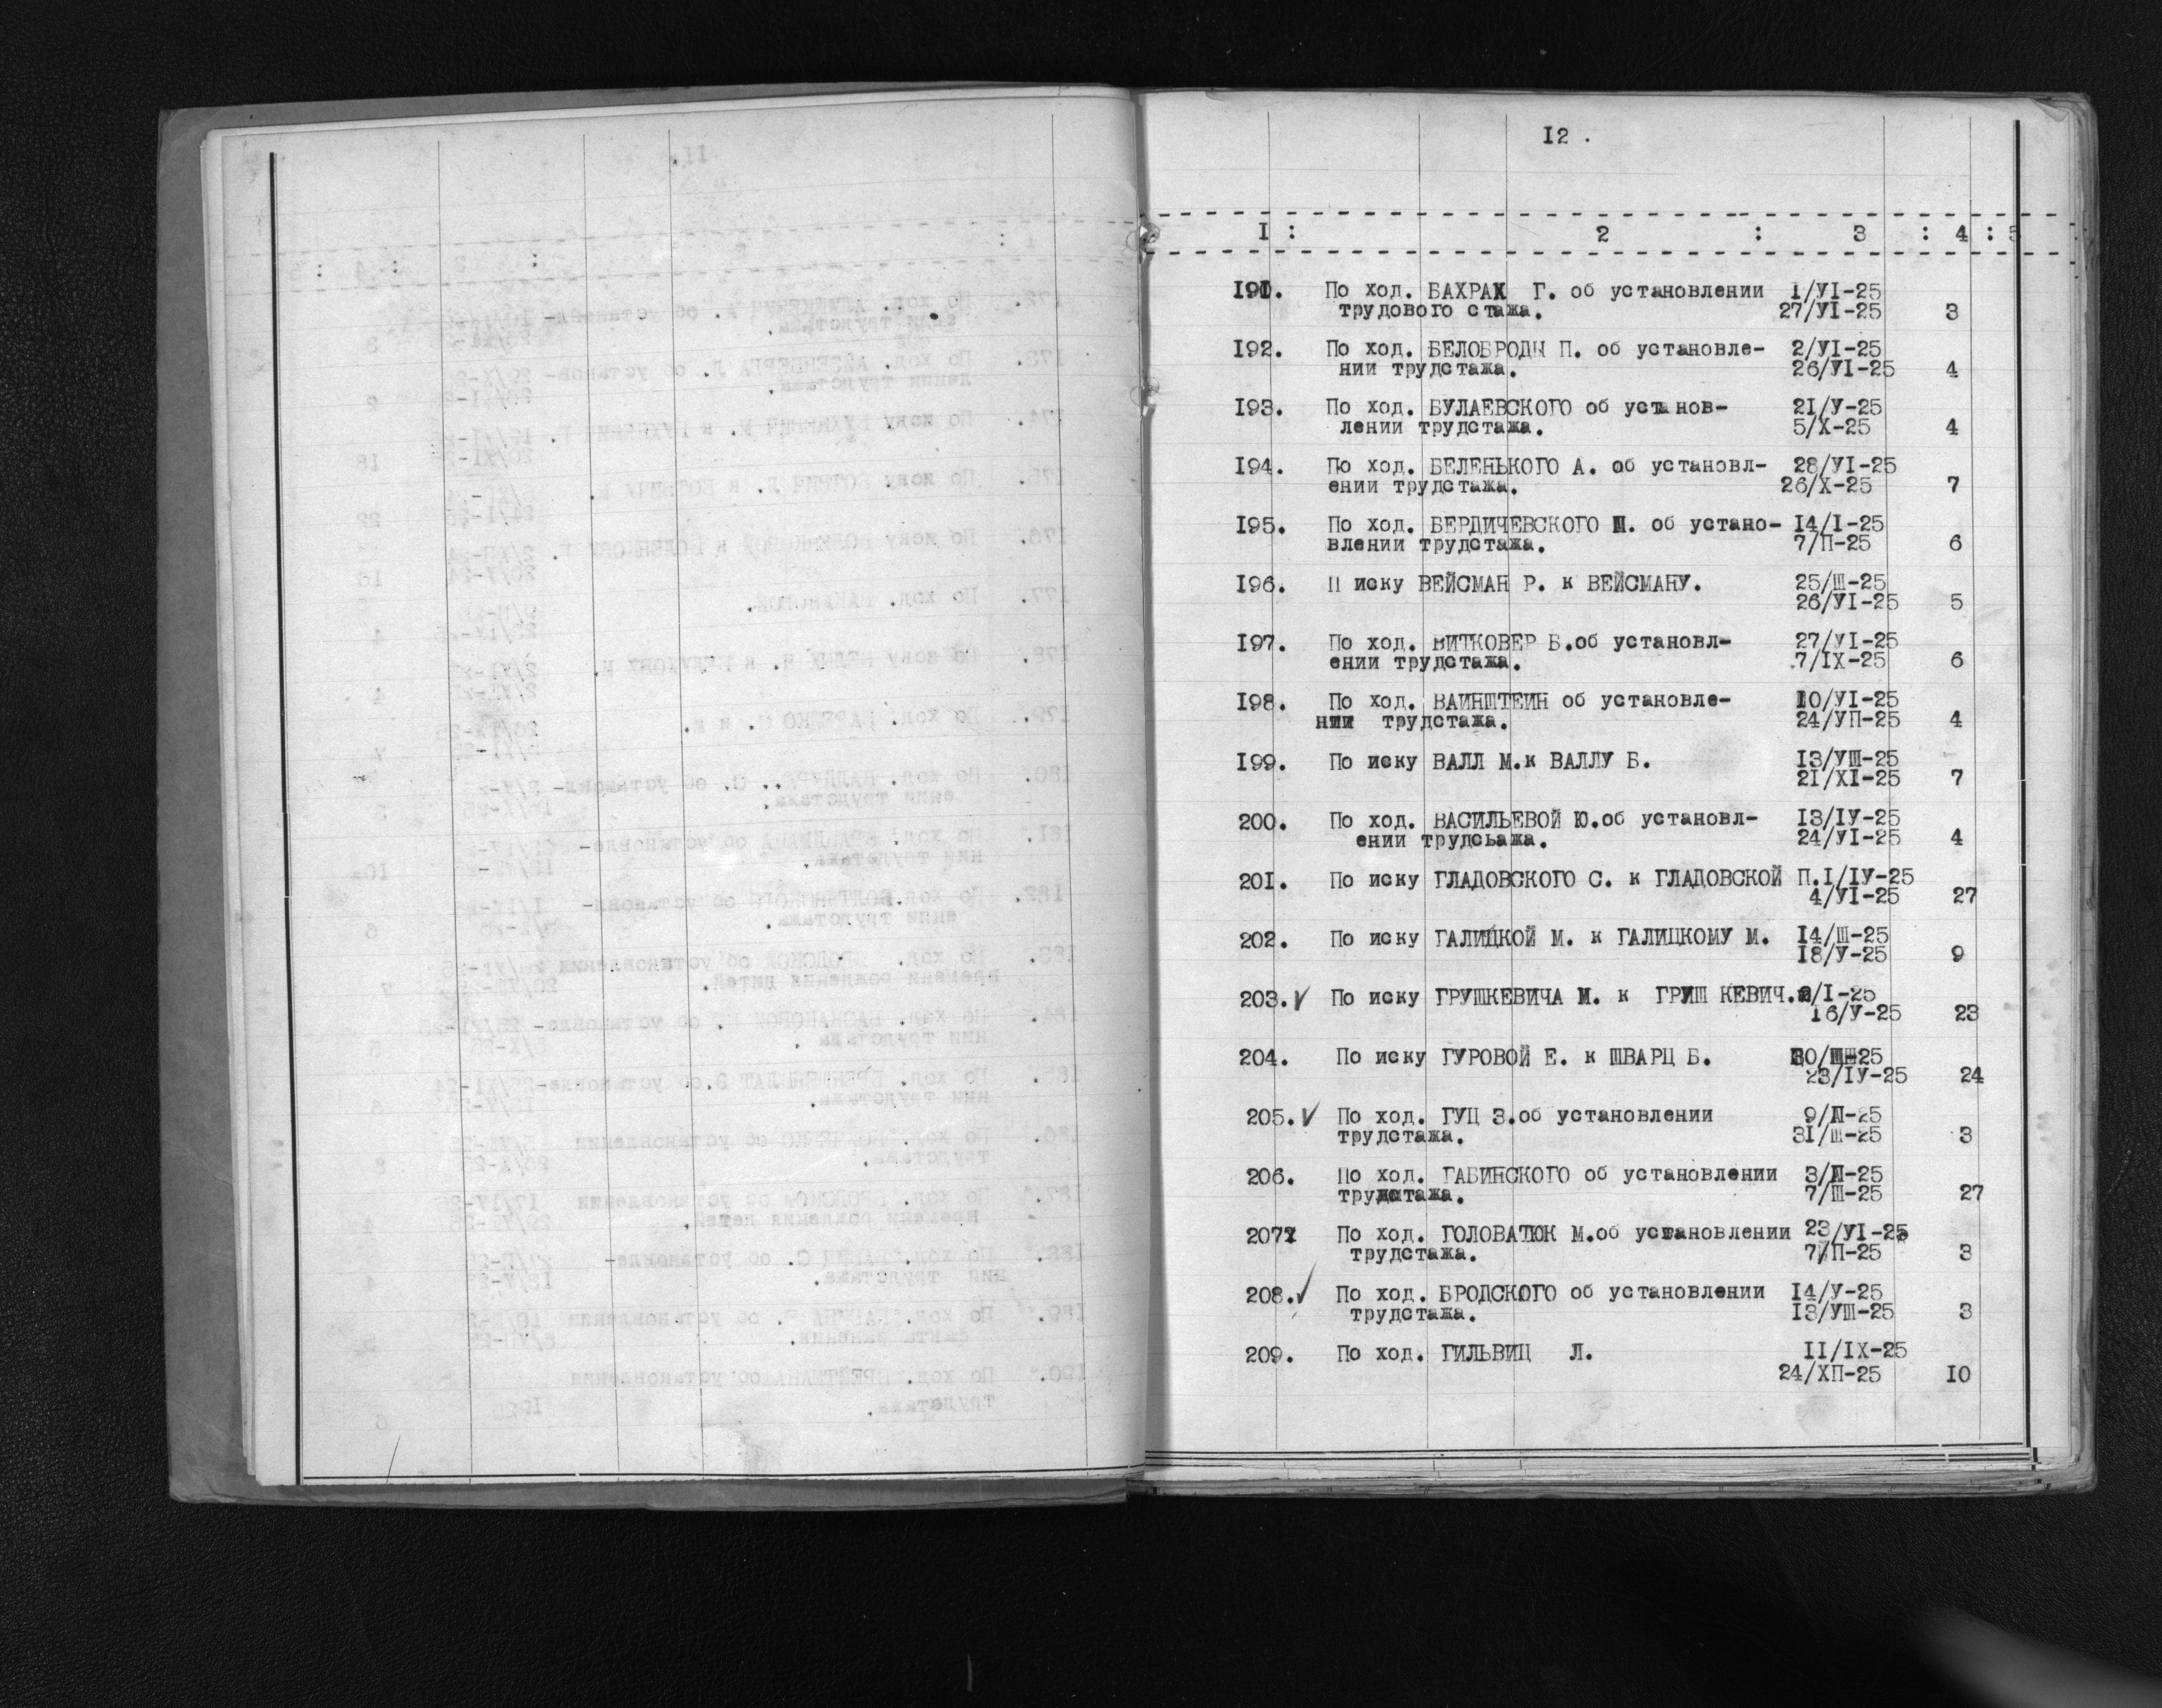 I2 .
I : 2 : 3 : 4 : 5
I9I. По ход. БАХРАХ Г. об установлении 1/УI-25
трудового стажа. 27/УI-25 3
I92. По ход. БЕЛОБРОДЫ П. об установле- 2/УI-25
нии трудстажа. 26/УI-25 4
I93. По ход. БУЛАЕВСКОГО об установ- 2I/У-25
лении трудстажа. 5/X-25 4
I94. По ход. БЕЛЕНЬКОГО А. об установл- 28/УI-25
ении трудстажа. 26/X-25 7
I95. По ход. БЕРДИЧЕВСКОГО Ш. об устано- I4/I-25
влении трудстажа. 7/П-25 6
I96. П иску ВЕЙСМАН Р. к ВЕЙСМАНУ. 25/Ш-25
26/УI-25 5
I97. По ход. ВИТКОВЕР Б.об установл- 27/УI-25
ении трудстажа. 7/IX-25 6
I98. По ход. ВАИНШТЕИН об установле- I0/УI-25
нии трудстажа. 24/УП-25 4
I99. По иску ВАЛЛ М.к ВАЛЛУ Б. I3/УШ-25
2I/XI-25 7
200. По ход. ВАСИЛЬЕВОЙ Ю.об установл- I3/IУ-25
ении трудсьажа. 24/УI-25 4
20I. По иску ГЛАДОВСКОГО С. к ГЛАДОВСКОЙ П.I/IУ-25
4/УI-25 27
202. По иску ГАЛИЦКОЙ М. к ГАЛИЦКОМУ М. I4/Ш-25
I8/У-25 9
203.✓ По иску ГРУШКЕВИЧА М. к ГРИШ КЕВИЧ.2/I-25
I6/У-25 23
204. По иску ГУРОВОЙ Е. к ШВАРЦ Б. 30/Ш-25
23/IУ-25 24
205.✓ По ход. ГУЦ З.об установлении 9/П-25
трудстажа. 3I/Ш-25 3
206. По ход. ГАБИНСКОГО об установлении 3/П-25
трудстажа. 7/Ш-25 27
207. По ход. ГОЛОВАТЮК М.об установлении 23/УI-25
трудстажа. 7/П-25 3
208.✓ По ход. БРОДСКОГО об установлении I4/У-25
трудстажа. I3/УШ-25 3
209. По ход. ГИЛЬВИЦ Л. II/IX-25
24/XП-25 I0